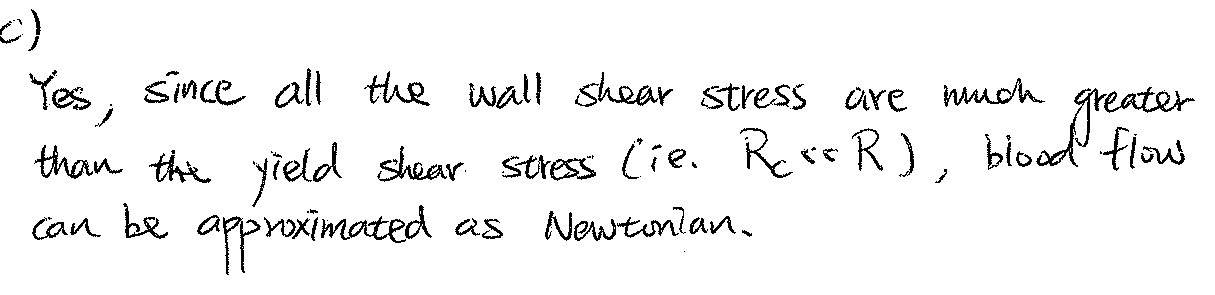 c)
Yes, since all the wall shear stress are much greater
than the yield shear stress (ie. Rc << R), blood flow
can be approximated as Newtonian.